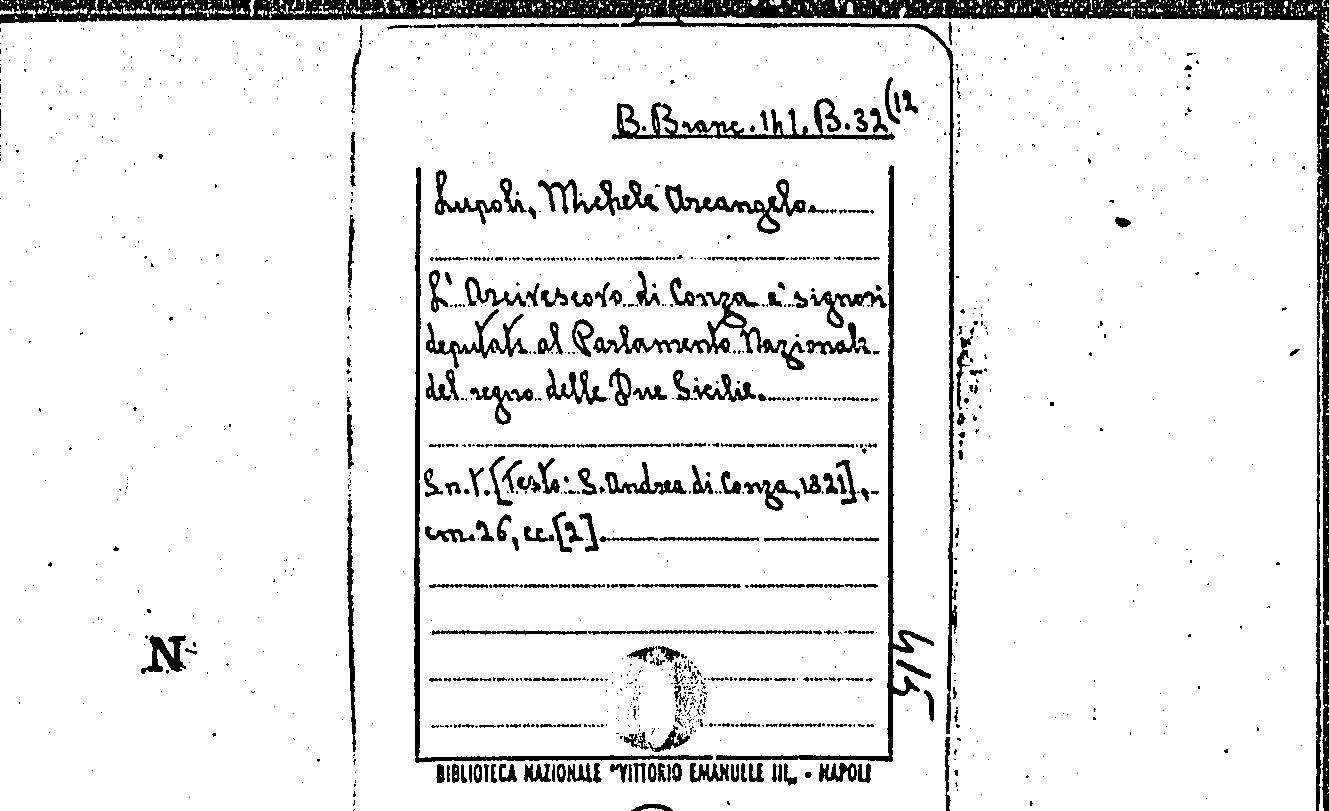 B. Branc. 141. B. 32(12
Lupoli, Michele Arcangelo.
L' Arcivescovo di Conza a' signori
deputati al Parlamento Nazionale
del regno delle Due Sicilie.
S.n.t. [Testo: S. Andrea di Conza, 1821],
cm. 26, cc. [2].
N
BIBLIOTECA NAZIONALE "VITTORIO EMANULLE III„ - NAPOLI